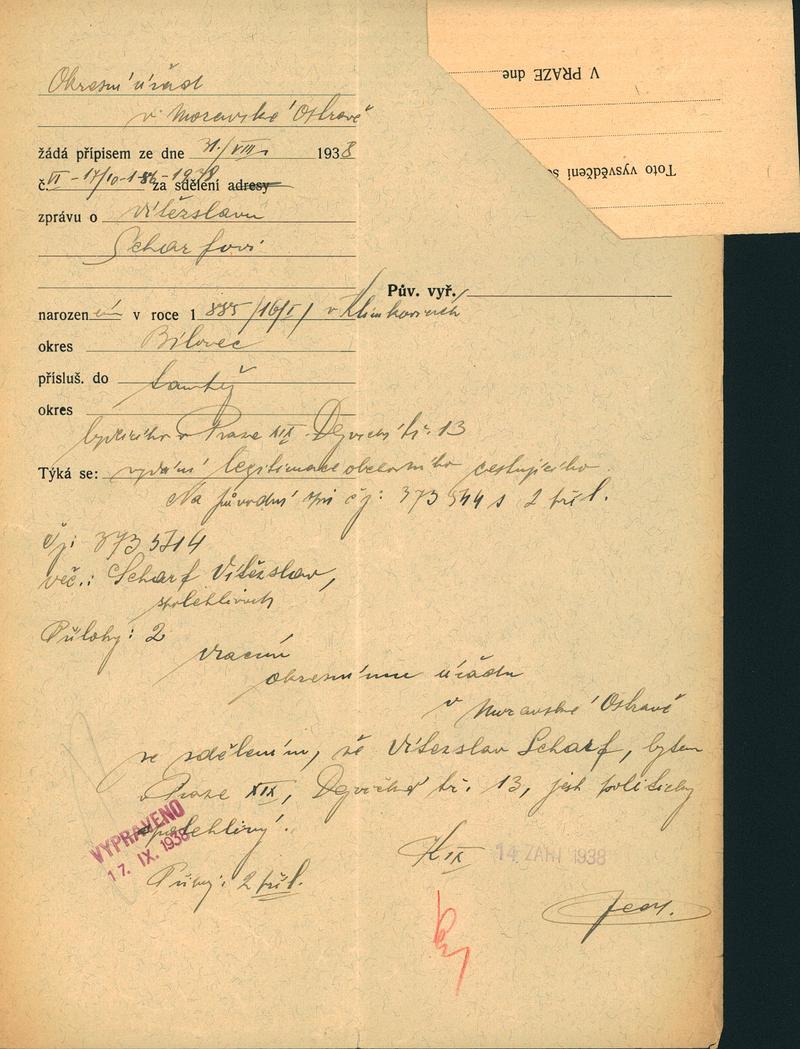 Okresní úřad
v Moravské Ostravě
žádá přípisem ze dne 31./VIII. 1938
č. VI - 17/10-1-82-1938 za sdělení adresy
zprávu o Vítězslavu
Scharfovi
Pův. vyř.
narozen ém v roce 1885/16/I/ v Klimkovicích
okres Bílovec
přísluš. do
okres
bytem v Praze XIX Dejvická tř. 13
Týká se: vydání legitimace obchodního cestujícího.
Na původní spis čj: 373544 s 2 příl.
Čj: 373 5714
věc.: Scharf Vítězslav,
spolehlivost
Přílohy: 2
Vracím
okresnímu úřadu
v Moravské Ostravě
se sdělením, že Vítězslav Scharf, bytem
v Praze XIX, Dejvická tř. 13, jest politicky
spolehlivý.
VYPRAVENO
17. IX. 1938
XIX 14 ZÁŘÍ 1938
Příl.: 2 příl.
V PRAZE dne
Toto vysvědčení